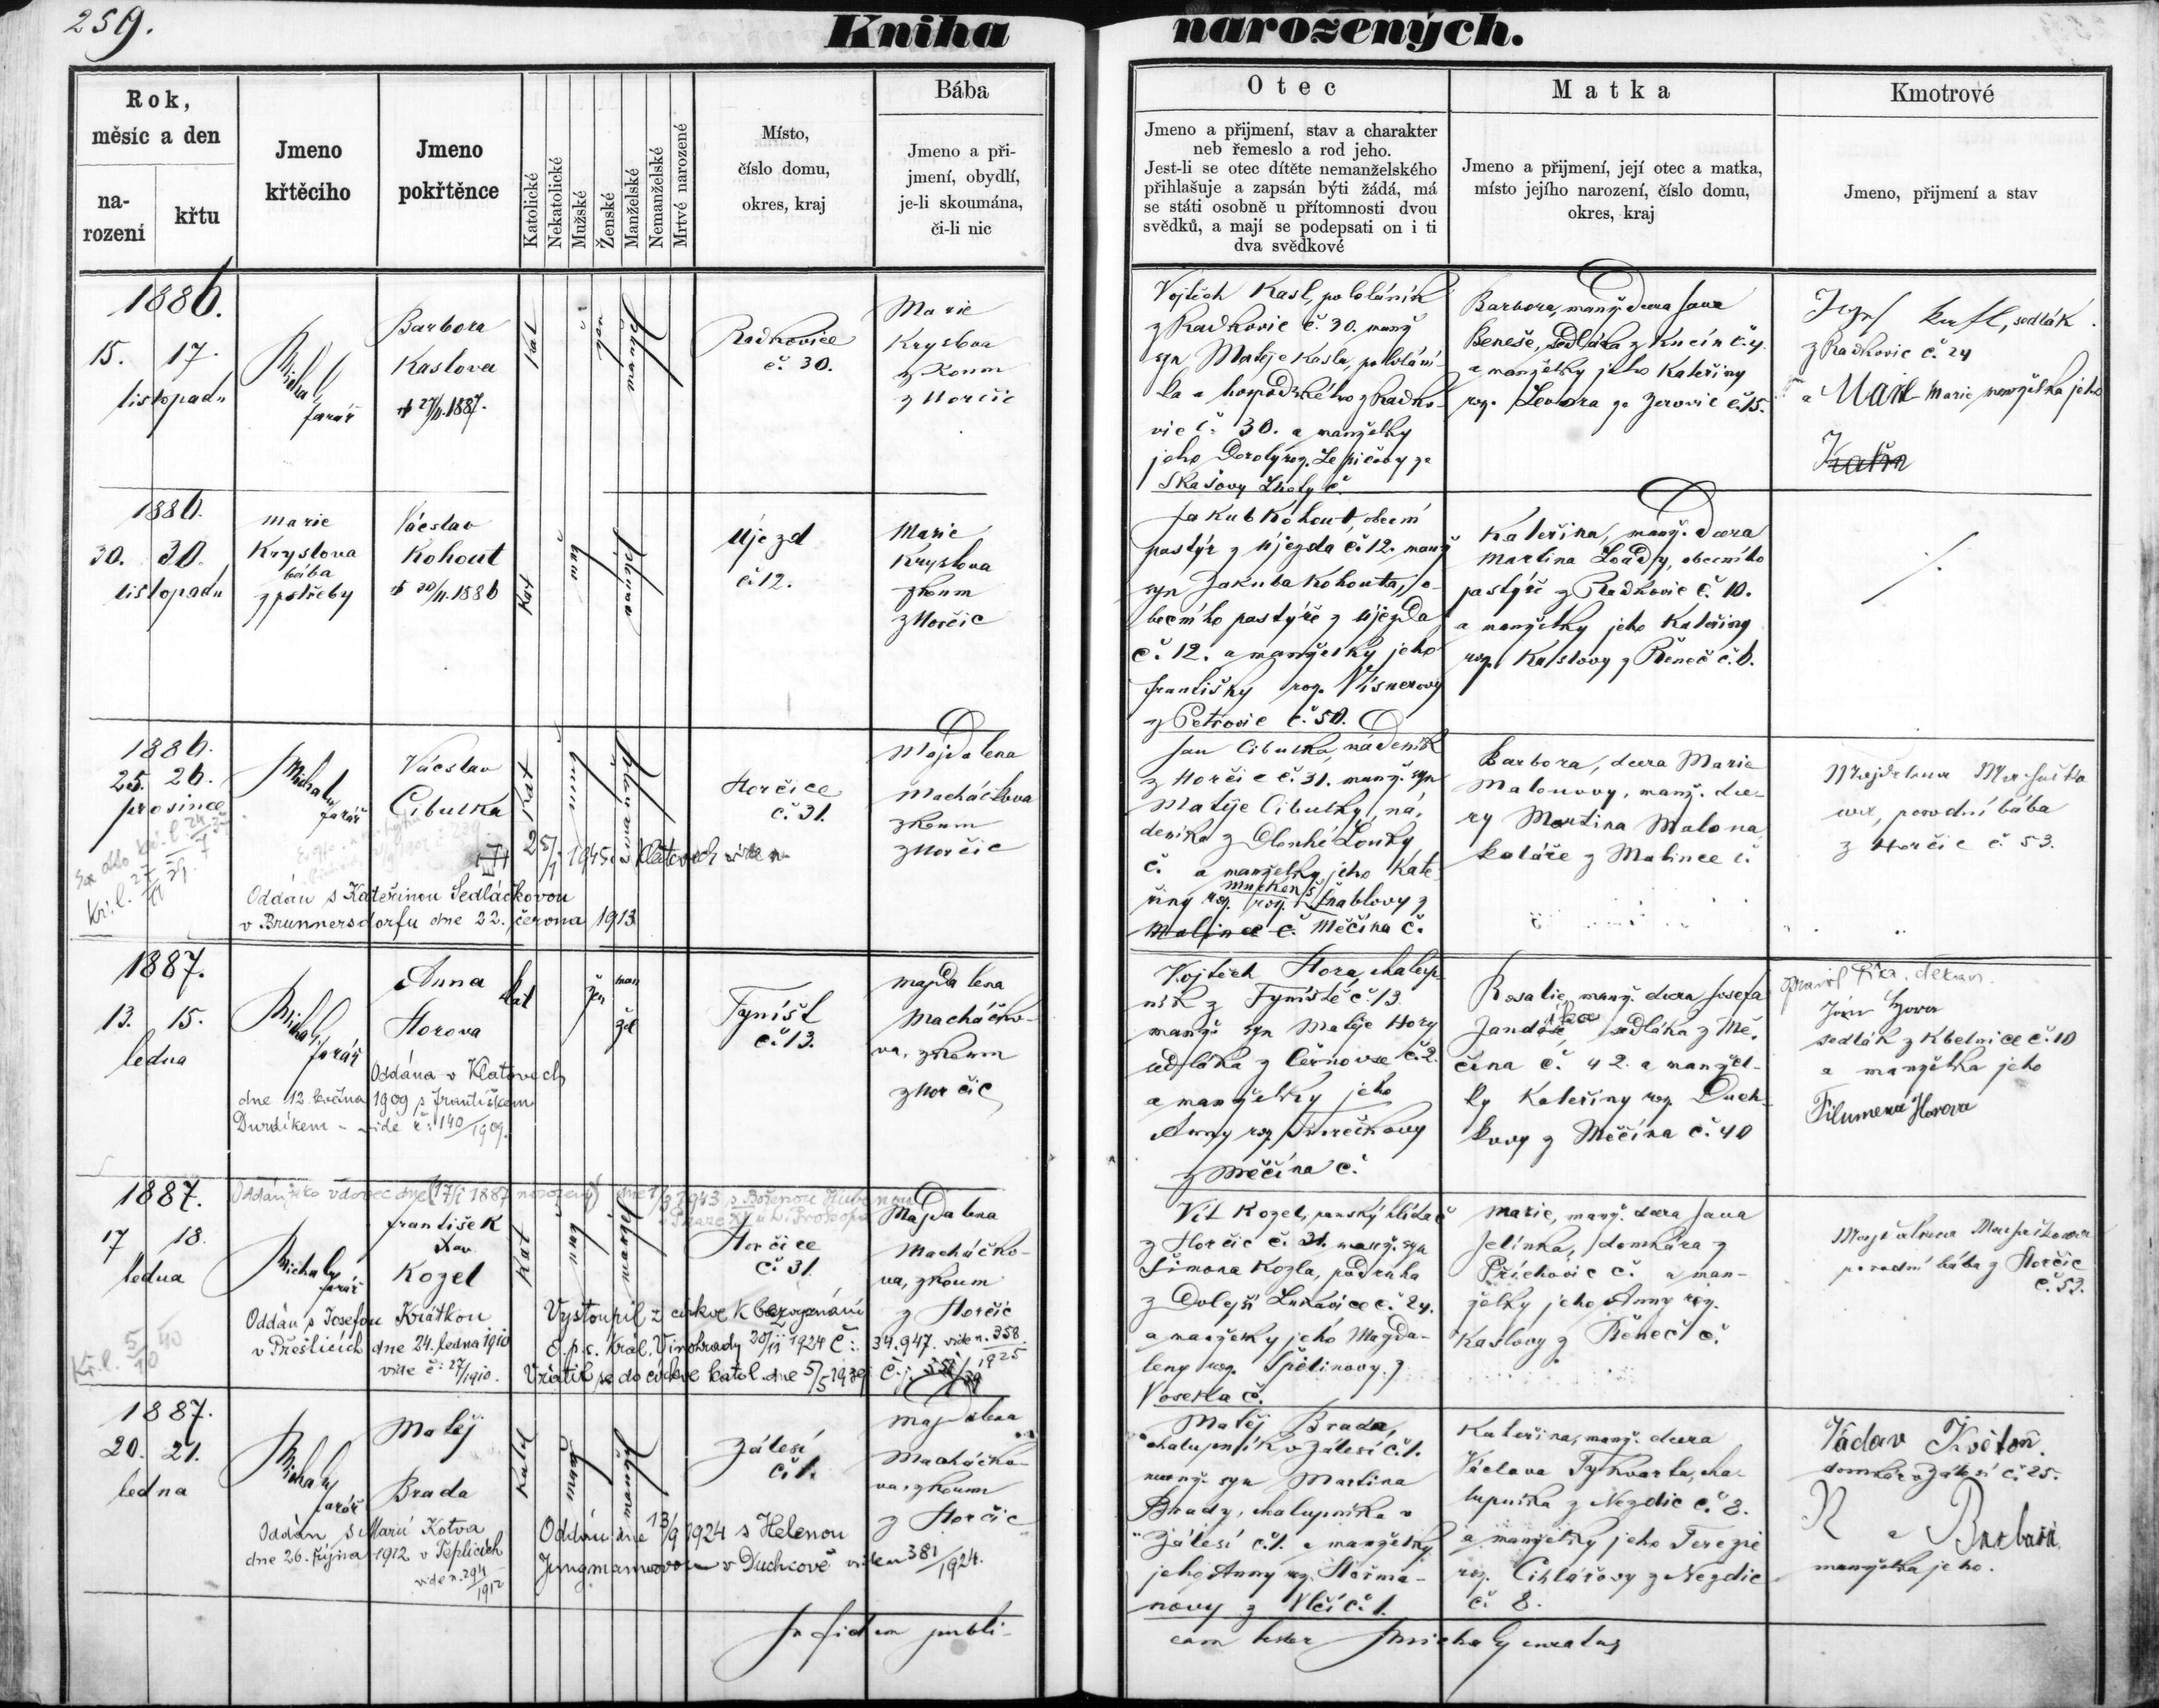 259.
Kniha narozených.
Rok,
měsíc a den
na-
rození
křtu
Jmeno
křtěcího
Jmeno
pokřtěnce
Katolické
Nekatolické
Mužské
Ženské
Manželské
Nemanželské
Mrtvé narozené
Místo,
číslo domu,
okres, kraj
Bába
Jmeno a při-
jmení, obydlí,
je-li skoumána,
či-li nic
Otec
Jmeno a přijmení, stav a charakter
neb řemeslo a rod jeho.
Jest-li se otec dítěte nemanželského
přihlašuje a zapsán býti žádá, má
se státi osobně u přítomnosti dvou
svědků, a mají se podepsati on i ti
dva svědkové
Matka
Jmeno a přijmení, její otec a matka,
místo jejího narození, číslo domu,
okres, kraj
Kmotrové
Jmeno, přijmení a stav
1886.
15. 17.
listopadu
Michal
farář
Barbora
Kaslova
† 27/11.1887.
Kat
Radkovice
č. 30.
Marie
Krystova
z koum
z Horčic
Vojtěch Kasl, pololáník
z Radkovic č. 30. manž
syn Matěje Kasla, pololání-
ka a hospodského z Radko-
vic č. 30. a manželky
jeho Doroty roz. Lepičovy ze
Skašovy Lhoty č.
Barbora, manž. dcera Jana
Beneše, sedláka z Knčín č. 4.
a manželky jeho Kateřiny
roz. ze Zerovic č. 15.
Josef Kasl, sedlák
z Radkovic č. 24
a Marie manželka jeho
1886.
30. 30.
listopadu
Marie
Krystova
bába
z potřeby
Václav
Kohout
† 30/11.1886
Kat
Újezd
č. 12.
Marie
Krystova
zkoum
z Horčic
Jakub Kohout, obecní
pastýř z Újezda č. 12. manž
syn Jakuba Kohouta, o-
becního pastýře z Újezda
č. 12. a manželky jeho
Františky roz. Vísnerovy
z Petrovic č. 50.
Kateřina, manž. dcera
Martina Loudy, obecního
pastýře z Radkovic č. 10.
a manželky jeho Kateřiny
roz. Kaslovy z Řeneč č. 6.
1886.
25. 26.
prosince
Michal
farář
Václav
Cibulka
Kat
25/1 1945 v Klatovech
Oddán s Kateřinou Sedláčkovou
v Brunnersdorfu dne 22. června 1913
Horčice
č. 31.
Majdalena
Macháčkova
zkoum
z Horčic
Jan Cibulka, nádeník
z Horčic č. 31. manž. syn
Matěje Cibulky, ná-
deníka z Dlouhé Louky
č. a manželky jeho Kate-
řiny roz. Šnablovy z
Malince č. Měčína č.
Barbora, dcera Marie
Malonovy, manž. dce-
ry Martina Malona
koláře z Malince č.
Majdalena Machačko
va, porodní bába
z Horčic č. 53.
1887.
13. 15.
ledna
Michal
farář
Anna
Horova
Oddána v Klatovech
dne 12. května 1909 s Františkem
Durdíkem - vide č: 140/1909.
kat
žen
man
žel
Týništ
č. 13.
Majdalena
Macháčko-
va, zkoum
z Horčic
Vojtěch Hora, chalup-
ník z Týniště č. 13.
manž. syn Matěje Hory
sedláka z Černovse č. 2.
a manželky jeho
Anny roz. Turečkovy
z Měčína č.
Rosalie, manž. dcera Josefa
sedláka z Mě-
čína č. 42. a manžel-
ky Kateřiny roz. Duch-
kovy z Měčína č. 40
Pika, děkan.
Jan Hora
sedlák z Kbelnice č. 10
a manželka jeho
Filumena Horova
1887.
17 18.
ledna
Oddán jako vdovec
1943 s Boženou
Michal
farář
František
Xav
Kozel
Kat
Oddán s Josefou Krátkou
v Přešticích dne 24. ledna 1910
vide č: 27/1910.
Vystoupil z církve k bezvyznání
o. p. s. Král. Vinohrady 20/11 1924 č: 34.947. vide n. 358/1925
Vrátil se do církve katol. dne 5/5 1939
Horčice
č. 31
Majdalena
Macháčko-
va, zkoum
z Horčic
Vít Kozel, panský hlídač
z Horčic č. 31. manž. syn
Šimona Kozla, podruha
z Dolejší Lukavice č. 24.
a manželky jeho Magda-
leny roz. Spělinovy z
Voseka č.
Marie, manž. dcera Jana
Jelínka, domkára z
Příchovic č. a man-
želky jeho Anny roz.
Kaslovy z Řeneč č.
Majdalena Machačkova
porodní bába z Horčic
č. 53.
1887.
20. 21.
ledna
Michal
farář
Matěj
Brada
Oddán s Marií Kotva
dne 26. října 1912 v Teplicích
vide n. 294/1912
Katol
Oddán dne 13/9 1924 s Helenou
Jungmannovou v Duchcově vide n 381/1924.
Zálesí
č. 1.
Majdalena
Macháčko-
va, zkoum
z Horčic
Matěj Brada,
chalupník v Zálesí č. 1.
manž. syn Martina
Brady, chalupníka v
Zálesí č. 1. a manželky
jeho Anny roz. Heřma-
novy z Vlčí č. 1.
Kateřina, manž. dcera
Václava Tykvarta, cha-
lupníka z Nezdic č. 8.
a manželky jeho Terezie
roz. Cihlářovy z Nezdic
č. 8.
Václav Květoň.
domkář v Zálesí č. 25.
a Barbora
manželka jeho.
In fidem publi-
cam testor Michal curatus